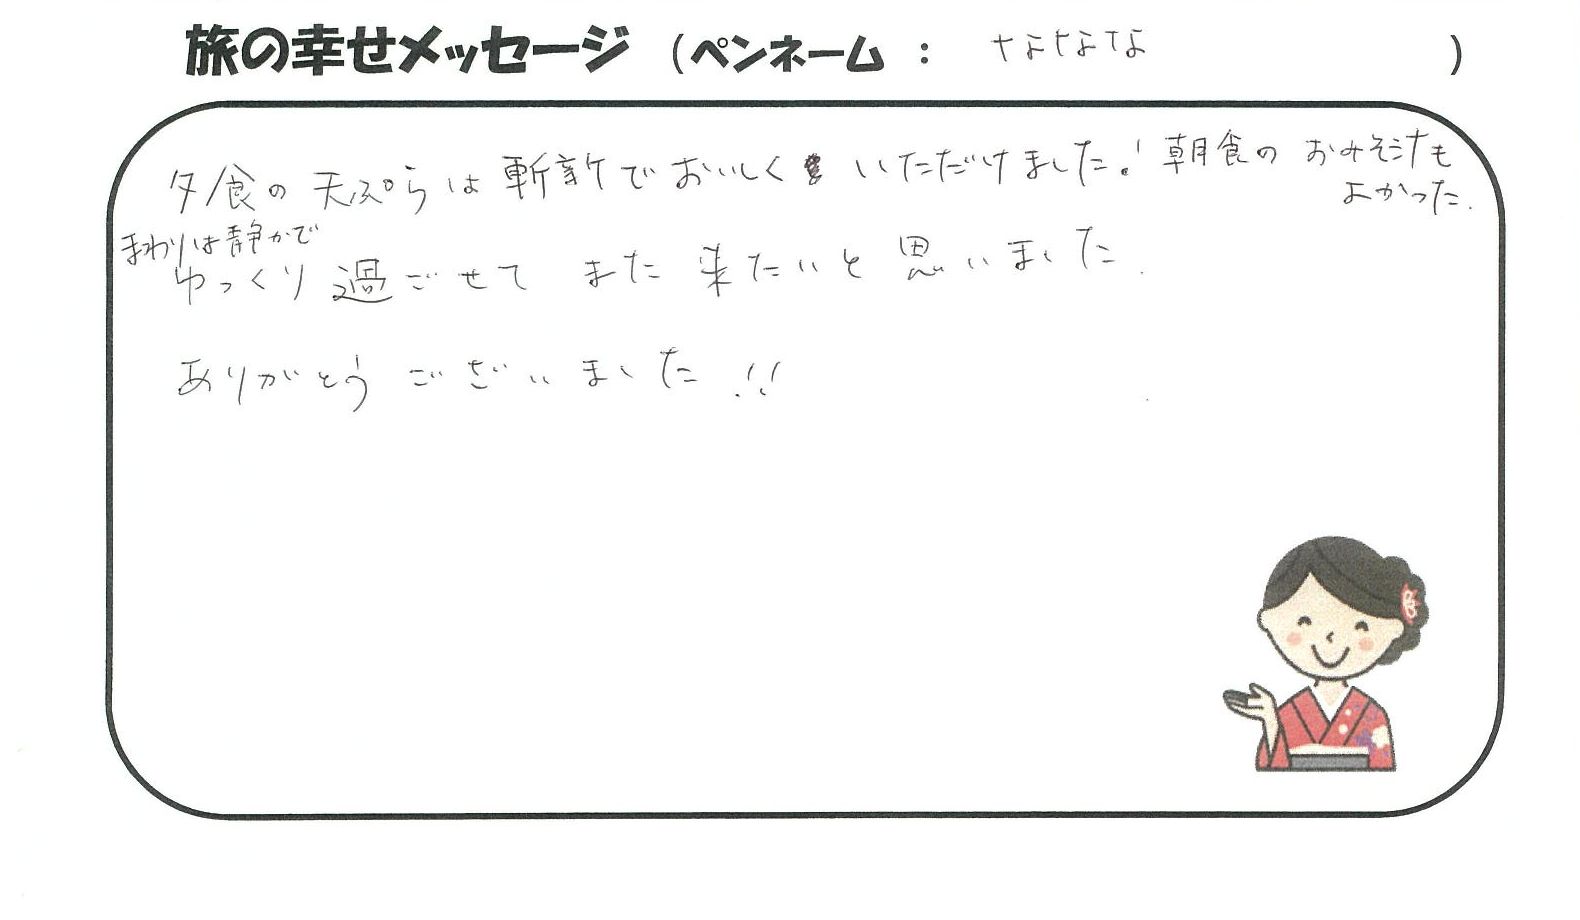 旅の幸せメッセージ (ペンネーム : ななな)
夕食の天ぷらは斬新でおいしくいただけました! 朝食のおみそ汁も
よかった.
まわりは静かで
ゆっくり過ごせて また来たいと思いました.
ありがとうございました!!